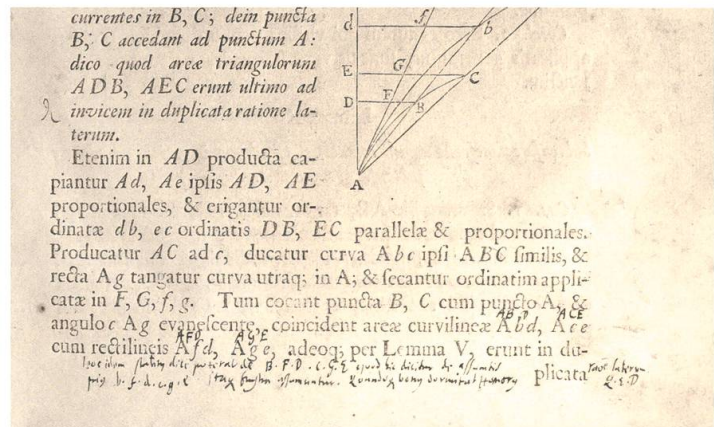 currentes in B, C; dein puncta
B, C accedant ad punctum A:
dico quod areæ triangulorum
ADB, AEC erunt ultimo ad
invicem in duplicata ratione la-
terum.
Etenim in AD producta ca-
piantur Ad, Ae ipsis AD, AE
proportionales, & erigantur or-
dinatæ db, ec ordinatis DB, EC parallelæ & proportionales.
Producatur AC ad c, ducatur curva Abc ipsi ABC similis, &
recta Ag tangatur curva utraq; in A; & secantur ordinatim appli-
catæ in F, G, f, g. Tum coeant puncta B, C cum puncto A, &
angulo c Ag evanescente, coincident areæ curvilineæ Abd, Ace
cum rectilineis Afd, Age, adeoq; per Lemma V, erunt in du-
plicata
d
f
b
E
G
C
D
F
B
A
ABD
ACE
AFD
AGE
B. F. D. C. G. E
b. f. d. c. g. e
laterum
Q. E. D